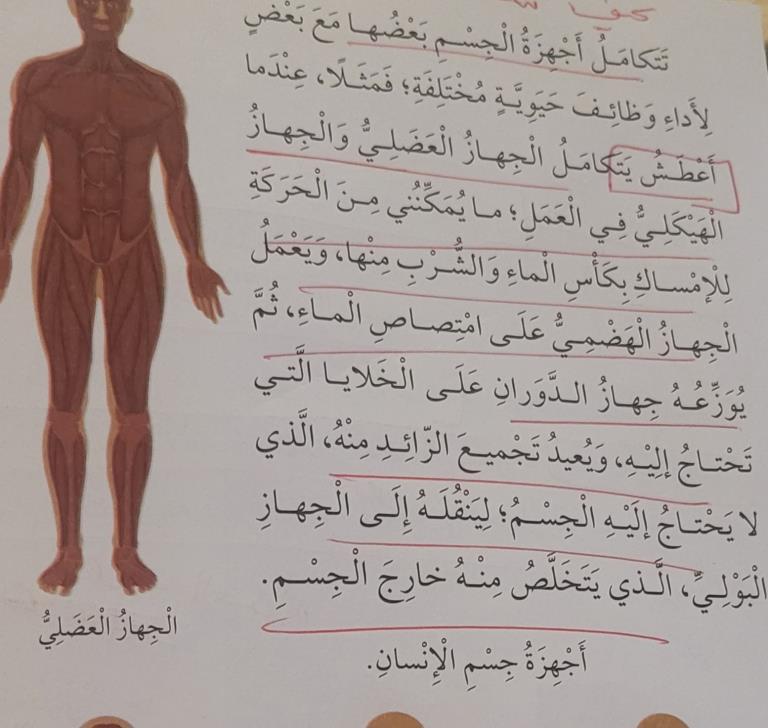 تَتَكامَلُ أَجْهِزَةُ الْجِسْمِ بَعْضُها مَعَ بَعْضٍ
لِأَداءِ وَظائِفَ حَيَوِيَّةٍ مُخْتَلِفَةٍ؛ فَمَثَلًا، عِنْدَما
أَعْطَشُ يَتَكامَلُ الْجِهازُ الْعَضَلِيُّ وَالْجِهازُ
الْهَيْكَلِيُّ فِي الْعَمَلِ؛ ما يُمَكِّنُني مِنَ الْحَرَكَةِ
لِلْإمْساكِ بِكَأْسِ الْماءِ وَالشُّرْبِ مِنْها، وَيَعْمَلُ
الْجِهازُ الْهَضْمِيُّ عَلَى امْتِصاصِ الْماءِ، ثُمَّ
يُوَزِّعُهُ جِهازُ الدَّوَرانِ عَلَى الْخَلايا الَّتي
تَحْتاجُ إِلَيْهِ، وَيُعيدُ تَجْميعَ الزّائِدِ مِنْهُ، الَّذي
لا يَحْتاجُ إِلَيْهِ الْجِسْمُ؛ لِيَنْقُلَهُ إِلَى الْجِهازِ
الْبَوْلِيِّ، الَّذي يَتَخَلَّصُ مِنْهُ خارِجَ الْجِسْمِ.
الْجِهازُ الْعَضَلِيُّ
أَجْهِزَةُ جِسْمِ الْإِنْسانِ.